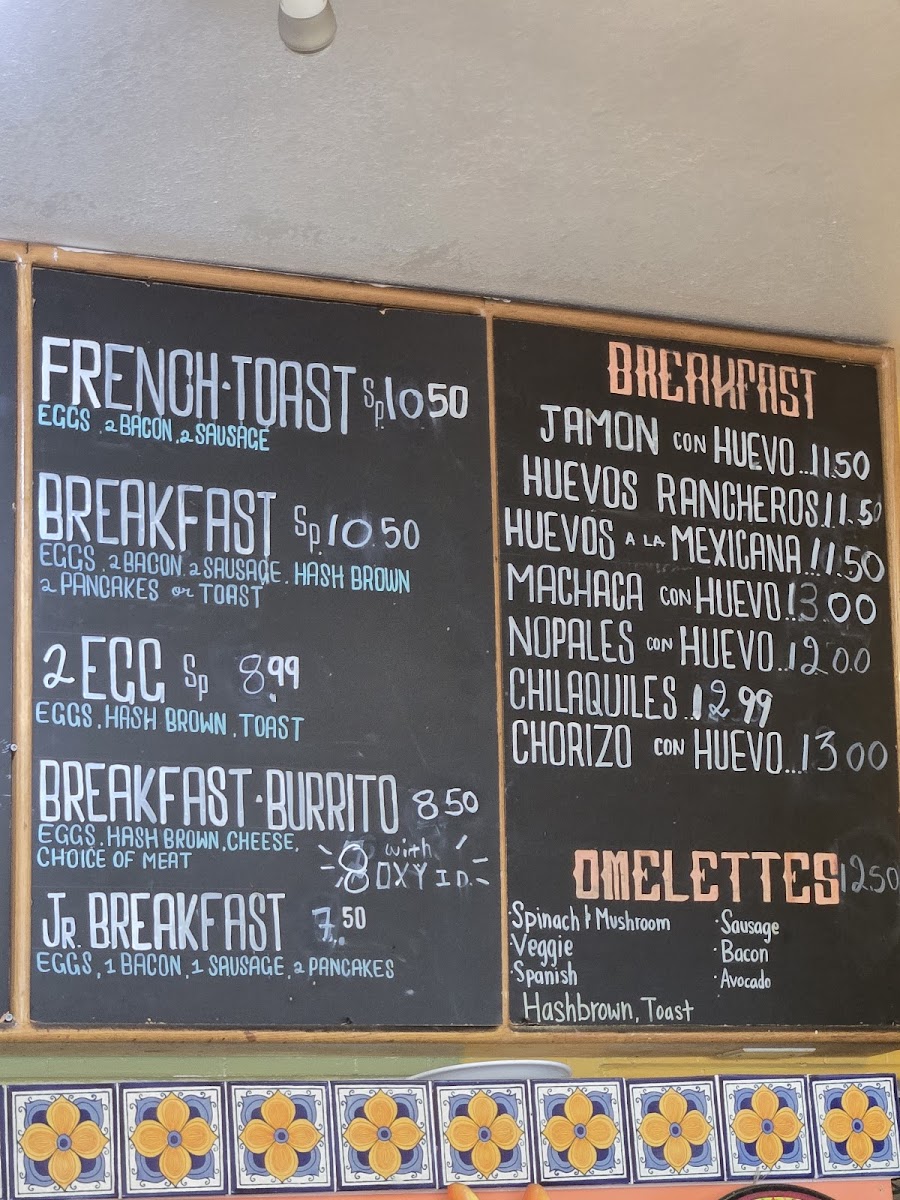 FRENCH·TOAST Sp. 10.50
EGGS, 2 BACON, 2 SAUSAGE
BREAKFAST Sp. 10.50
EGGS, 2 BACON, 2 SAUSAGE, HASH BROWN
2 PANCAKES or TOAST
2 EGG Sp 8.99
EGGS, HASH BROWN, TOAST
BREAKFAST·BURRITO 8.50
EGGS, HASH BROWN, CHEESE,
CHOICE OF MEAT
8 with
OXY ID.
JR. BREAKFAST 7.50
EGGS, 1 BACON, 1 SAUSAGE, 2 PANCAKES
BREAKFAST
JAMON CON HUEVO...11.50
HUEVOS RANCHEROS 11.50
HUEVOS A LA MEXICANA 11.50
MACHACA CON HUEVO 13.00
NOPALES CON HUEVO..12.00
CHILAQUILES..12.99
CHORIZO CON HUEVO...13.00
OMELETTES 12.50
·Spinach & Mushroom ·Sausage
·Veggie ·Bacon
·Spanish ·Avocado
Hashbrown, Toast